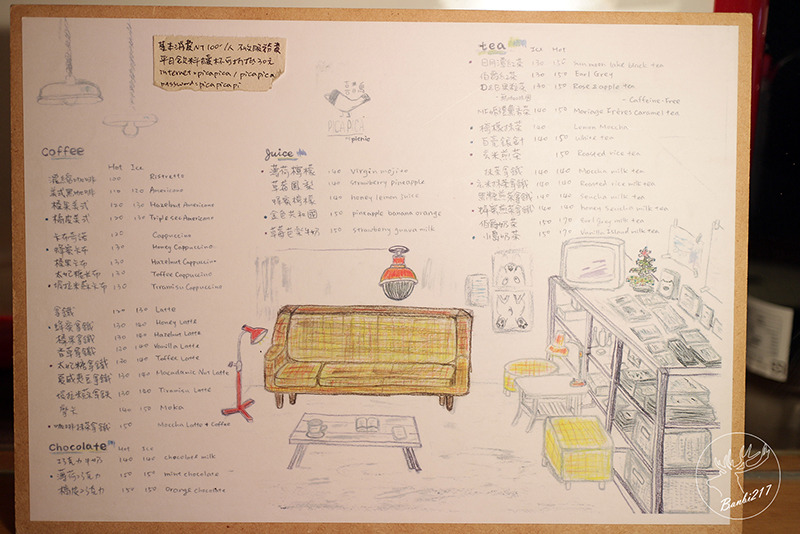 基本消費NT100/人 不收服務費
平日飲料續杯可折抵30元
internet:picapica / picapica
password:picapicapi
PICAPICA
picnic
Coffee
Hot Ice
100 Ristretto
美式黑咖啡 110 120 Americano
榛果美式 120 130 Hazelnut Americano
橘皮美式 120 130 Triple sec Americano
卡布奇諾 120 Cappuccino
蜂蜜卡布 130 Honey Cappuccino
榛果卡布 130 Hazelnut Cappuccino
太妃糖卡布 130 Toffee Cappuccino
提拉米蘇卡布 130 Tiramisu Cappuccino
拿鐵 120 130 Latte
蜂蜜拿鐵 130 140 Honey Latte
榛果拿鐵 130 140 Hazelnut Latte
香草拿鐵 130 140 Vanilla Latte
太妃糖拿鐵 130 140 Toffee Latte
夏威夷豆拿鐵 130 140 Macadamic Nut Latte
提拉米蘇拿鐵 130 140 Tiramisu Latte
摩卡 140 150 Moka
咖啡抹茶拿鐵 150 Maccha Latte + Coffee
Chocolate
Hot Ice
巧克力牛奶 140 140 chocolate milk
薄荷巧克力 150 150 mint chocolate
橘皮巧克力 150 150 orange chocolate
Juice
薄荷檸檬 140 Virgin mojito
草莓鳳梨 140 strawberry pineapple
蜂蜜檸檬 140 honey lemon juice
金色共和國 150 pineapple banana orange
草莓芭樂牛奶 150 strawberry guava milk
tea
Ice Hot
日月潭紅茶 130 sun moon lake black tea
伯爵紅茶 130 150 Earl Grey
150 Rose apple tea
- Caffeine-Free
140 150 Mariage Frères caramel tea
檸檬抹茶 140 Lemon Maccha
白毫銀針 140 150 white tea
玄米煎茶 150 Roasted rice tea
抹茶拿鐵 140 140 Maccha milk tea
玄米抹茶拿鐵 140 140 Roasted rice milk tea
140 140 Sencha milk tea
蜂蜜煎茶拿鐵 140 140 honey sencha milk tea
伯爵奶茶 150 170 Earl Grey milk tea
小島奶茶 150 170 Vanilla Island milk tea
Banbi217